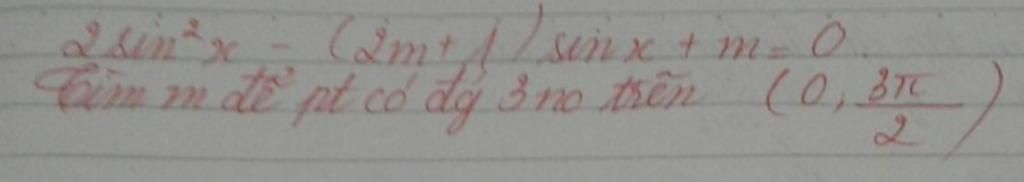 2sin²x - (2m+1)sinx + m = 0
Tìm m để pt có đg 3 no trên (0, 3π/2)